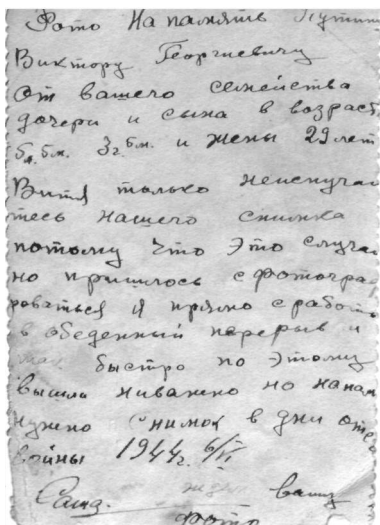 Фото На память Путин
Виктору Георгиевичу
от вашего семейства
дочери и сына в возраст
5л. 6м. 3г. 6м. и жены 29 лет
Витя только неиспугай
тесь нашего снимка
потому что это случай
но пришлось сфотограф
роваться я прямо с работы
в обеденный перерыв и
быстро по этому
вышли ниважно но на пам
нужно снимок в дни отеч
войны 1944г. 6/VI
ваш
фото